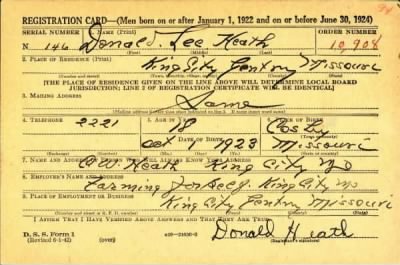 REGISTRATION CARD—(Men born on or after January 1, 1922 and on or before June 30, 1924)
SERIAL NUMBER 1. NAME (Print) ORDER NUMBER
N 146 Donald Lee Heath 10,908
2. PLACE OF RESIDENCE (Print)
King City Gentry Missouri
[THE PLACE OF RESIDENCE GIVEN ON THE LINE ABOVE WILL DETERMINE LOCAL BOARD
JURISDICTION; LINE 2 OF REGISTRATION CERTIFICATE WILL BE IDENTICAL]
3. MAILING ADDRESS
Same
4. TELEPHONE 5. AGE IN YEARS 6. PLACE OF BIRTH
2221 Cosby
DATE OF BIRTH
Oct 1 1923 Missouri
7. NAME AND ADDRESS OF PERSON WHO WILL ALWAYS KNOW YOUR ADDRESS
Heath King City Mo
8. EMPLOYER'S NAME AND ADDRESS
Farming for Self King City Mo
9. PLACE OF EMPLOYMENT OR BUSINESS
King City Gentry Missouri
I AFFIRM THAT I HAVE VERIFIED ABOVE ANSWERS AND THAT THEY ARE TRUE.
D. S. S. Form 1
(Revised 6-1-42) (over)
Donald Heath